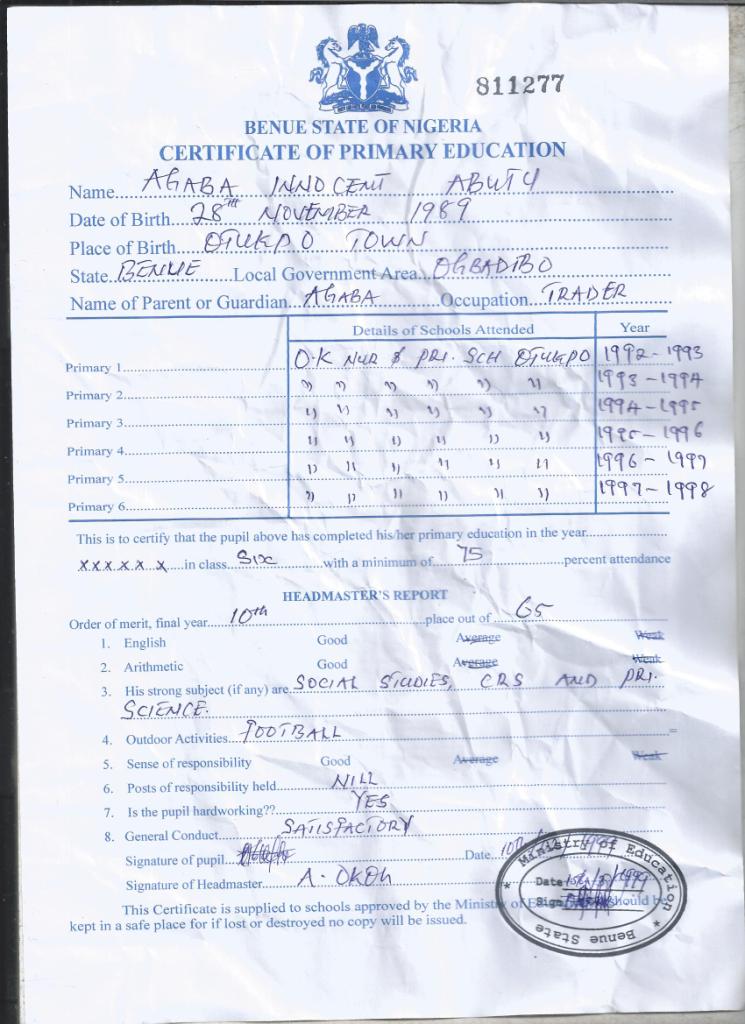 811277
BENUE STATE OF NIGERIA
CERTIFICATE OF PRIMARY EDUCATION
Name...AGABA INNOCENT ABUTU
Date of Birth...28TH NOVEMBER 1989
Place of Birth...OTUKPO TOWN
State...BENUE...Local Government Area...OGBADIBO
Name of Parent or Guardian...AGABA...Occupation...TRADER
Details of Schools Attended Year
Primary 1...O.K NUR & PRI. SCH OTUKPO 1992-1993
Primary 2... " " " " " " 1993-1994
Primary 3... " " " " " " 1994-1995
Primary 4... " " " " " " 1995-1996
Primary 5... " " " " " " 1996-1997
Primary 6... " " " " " " 1997-1998
This is to certify that the pupil above has completed his/her primary education in the year...
x x x x x x...in class...Six...with a minimum of...75...percent attendance
HEADMASTER'S REPORT
Order of merit, final year...10th...place out of...65
1. English Good Average Weak
2. Arithmetic Good Average Weak
3. His strong subject (if any) are...SOCIAL STUDIES, CRS AND PRI.
SCIENCE.
4. Outdoor Activities...FOOTBALL
5. Sense of responsibility Good Average Weak
6. Posts of responsibility held...NILL
7. Is the pupil hardworking??...YES
8. General Conduct...SATISFACTORY
Signature of pupil... Date...10th
Signature of Headmaster...A. OKOH
Ministry of Education
Date
Sign
Benue State
This Certificate is supplied to schools approved by the Ministry of Education should be
kept in a safe place for if lost or destroyed no copy will be issued.